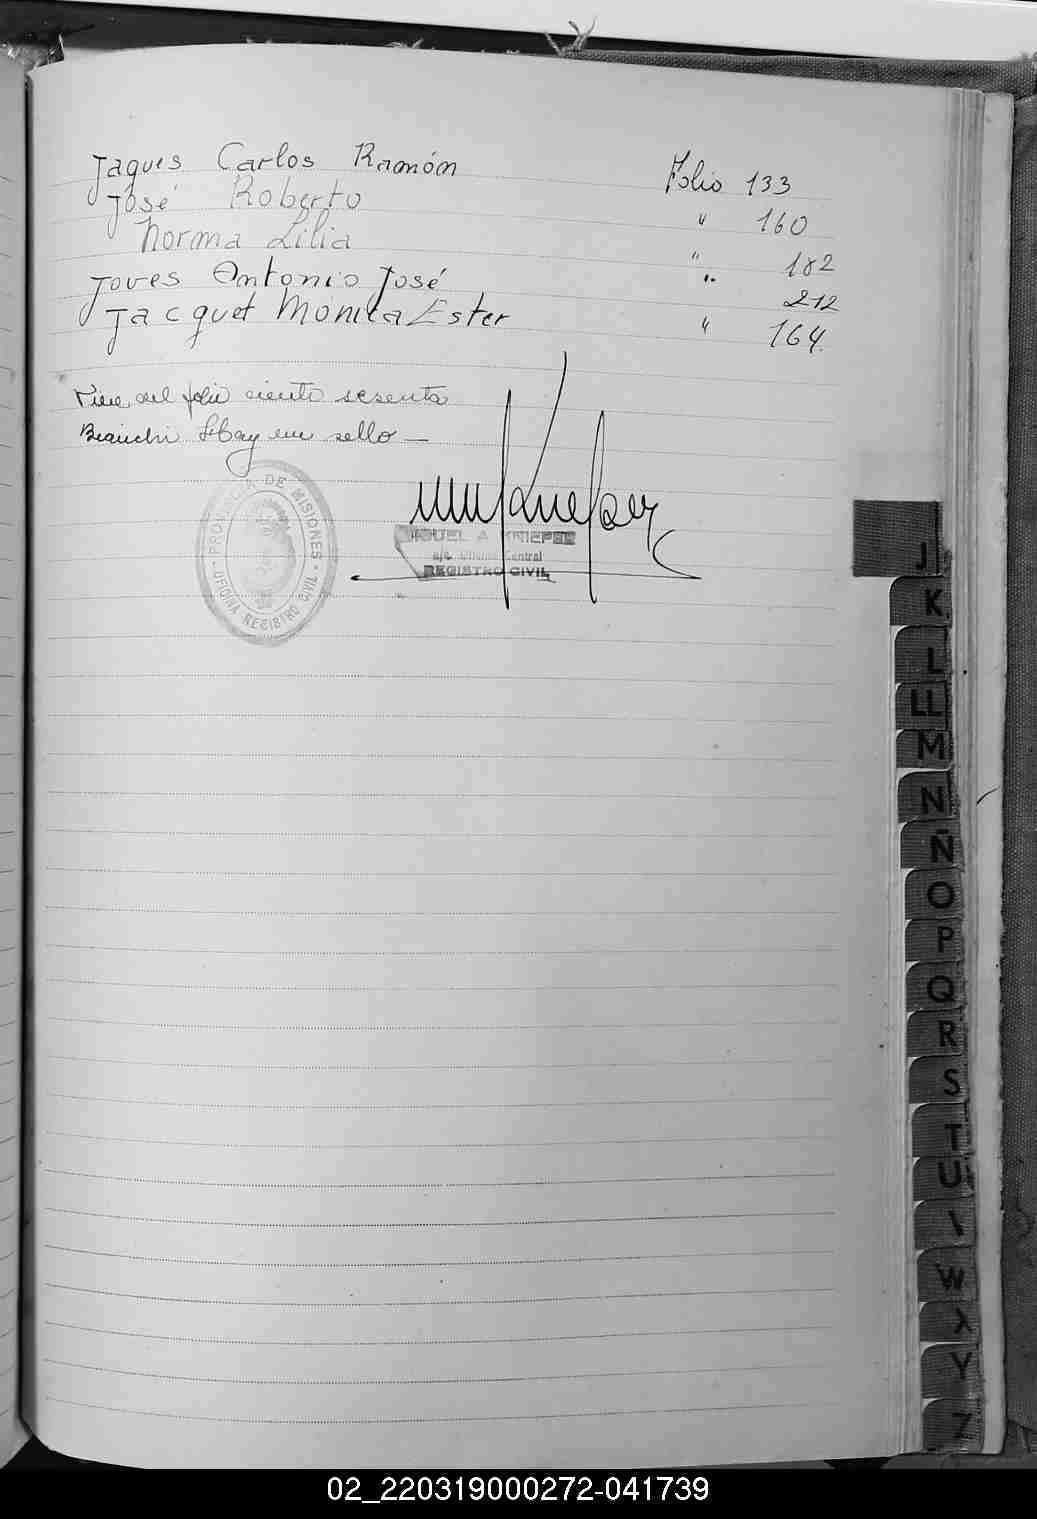 Jaques Carlos Ramón Folio 133
José Roberto " 160
Norma Lilia " 182
Joves Antonio José " 212
Jacquet Mónica Ester " 164.
Viene del folio ciento sesenta
Bianchi hay un sello —
PROVINCIA DE MISIONES
OFICINA REGISTRO CIVIL
MIGUEL A KNIEPER
a/c Oficina Central
REGISTRO CIVIL
J
K
L
LL
M
N
Ñ
O
P
Q
R
S
T
U
W
X
Y
Z
02_220319000272-041739